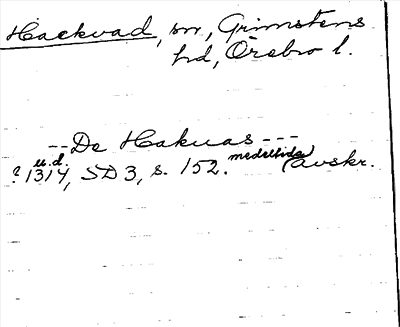 Hackvad, sn, Grimstens
hd, Örebro l.
--De Hakuas---
u.d.
? 1314, SD 3, s. 152. medeltida (avskr.